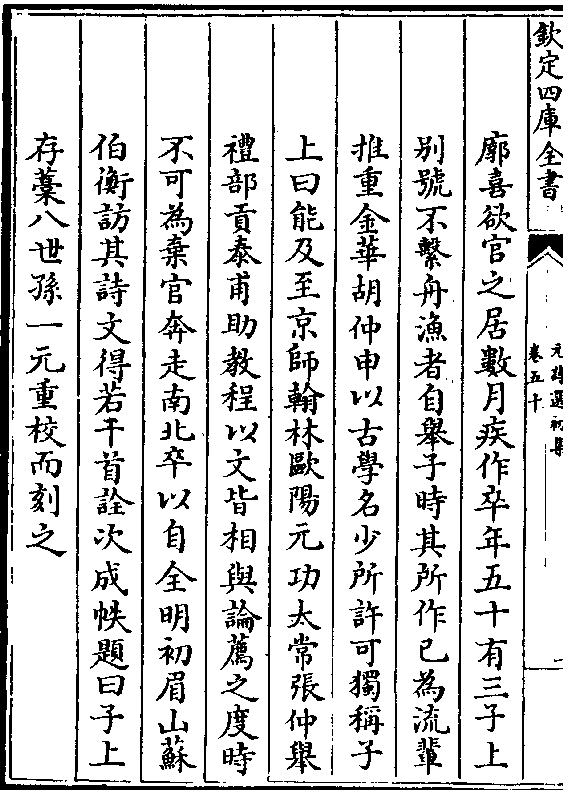 欽定四庫全書
元詩選初集
卷五十
廓喜欲官之居數月疾作卒年五十有三子上
别號不繫舟漁者自舉子時其所作已為流輩
推重金華胡仲申以古學名少所許可獨稱子
上曰能及至京師翰林歐陽元功太常張仲舉
禮部貢泰甫助教程以文皆相與論薦之度時
不可為棄官奔走南北卒以自全明初眉山蘇
伯衡訪其詩文得若干首詮次成帙題曰子上
存藁八世孫一元重校而刻之